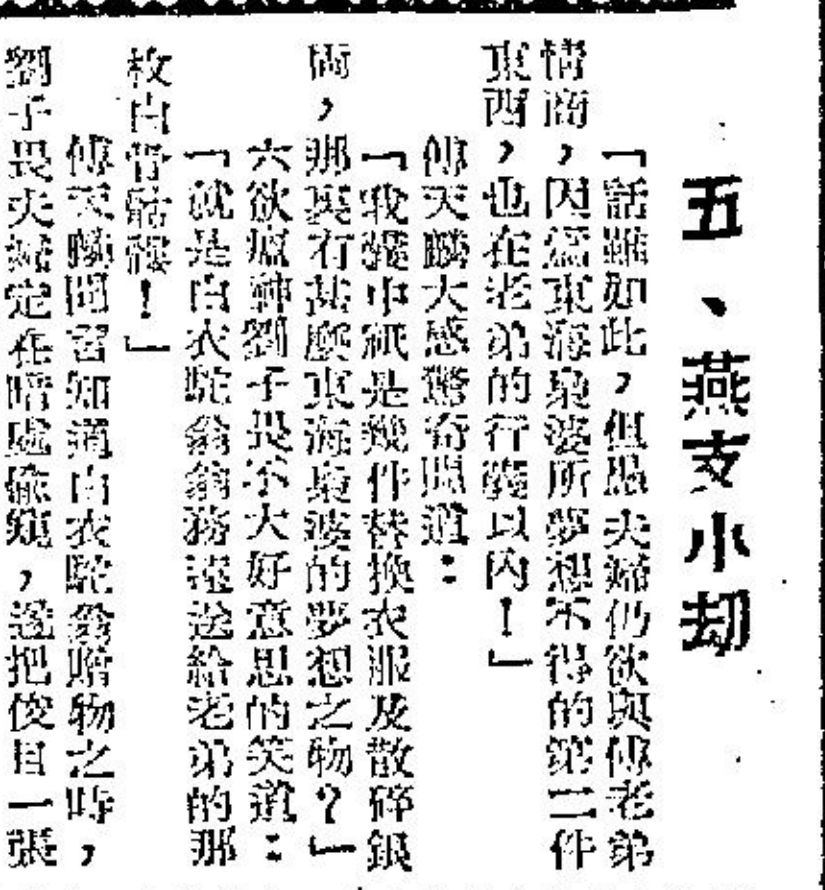 五、燕支小刧
「話雖如此，但愚夫婦仍欲與傅老弟
情商，因為東海梟婆所夢想不得的第二件
東西，也在老弟的行囊以內！」
傅天麟大感驚奇問道：
「我囊中祇是幾件替換衣服及散碎銀
両，那裏有甚麼東海梟婆的夢想之物？」
六欲瘟神劉子畏不大好意思的笑道：
「就是白衣駝翁翁務遠送給老弟的那
枚白骨骷髏！」
傅天麟聞言知道白衣駝翁贈物之時，
劉子畏夫婦定在暗處偷窺，遂把俊目一張